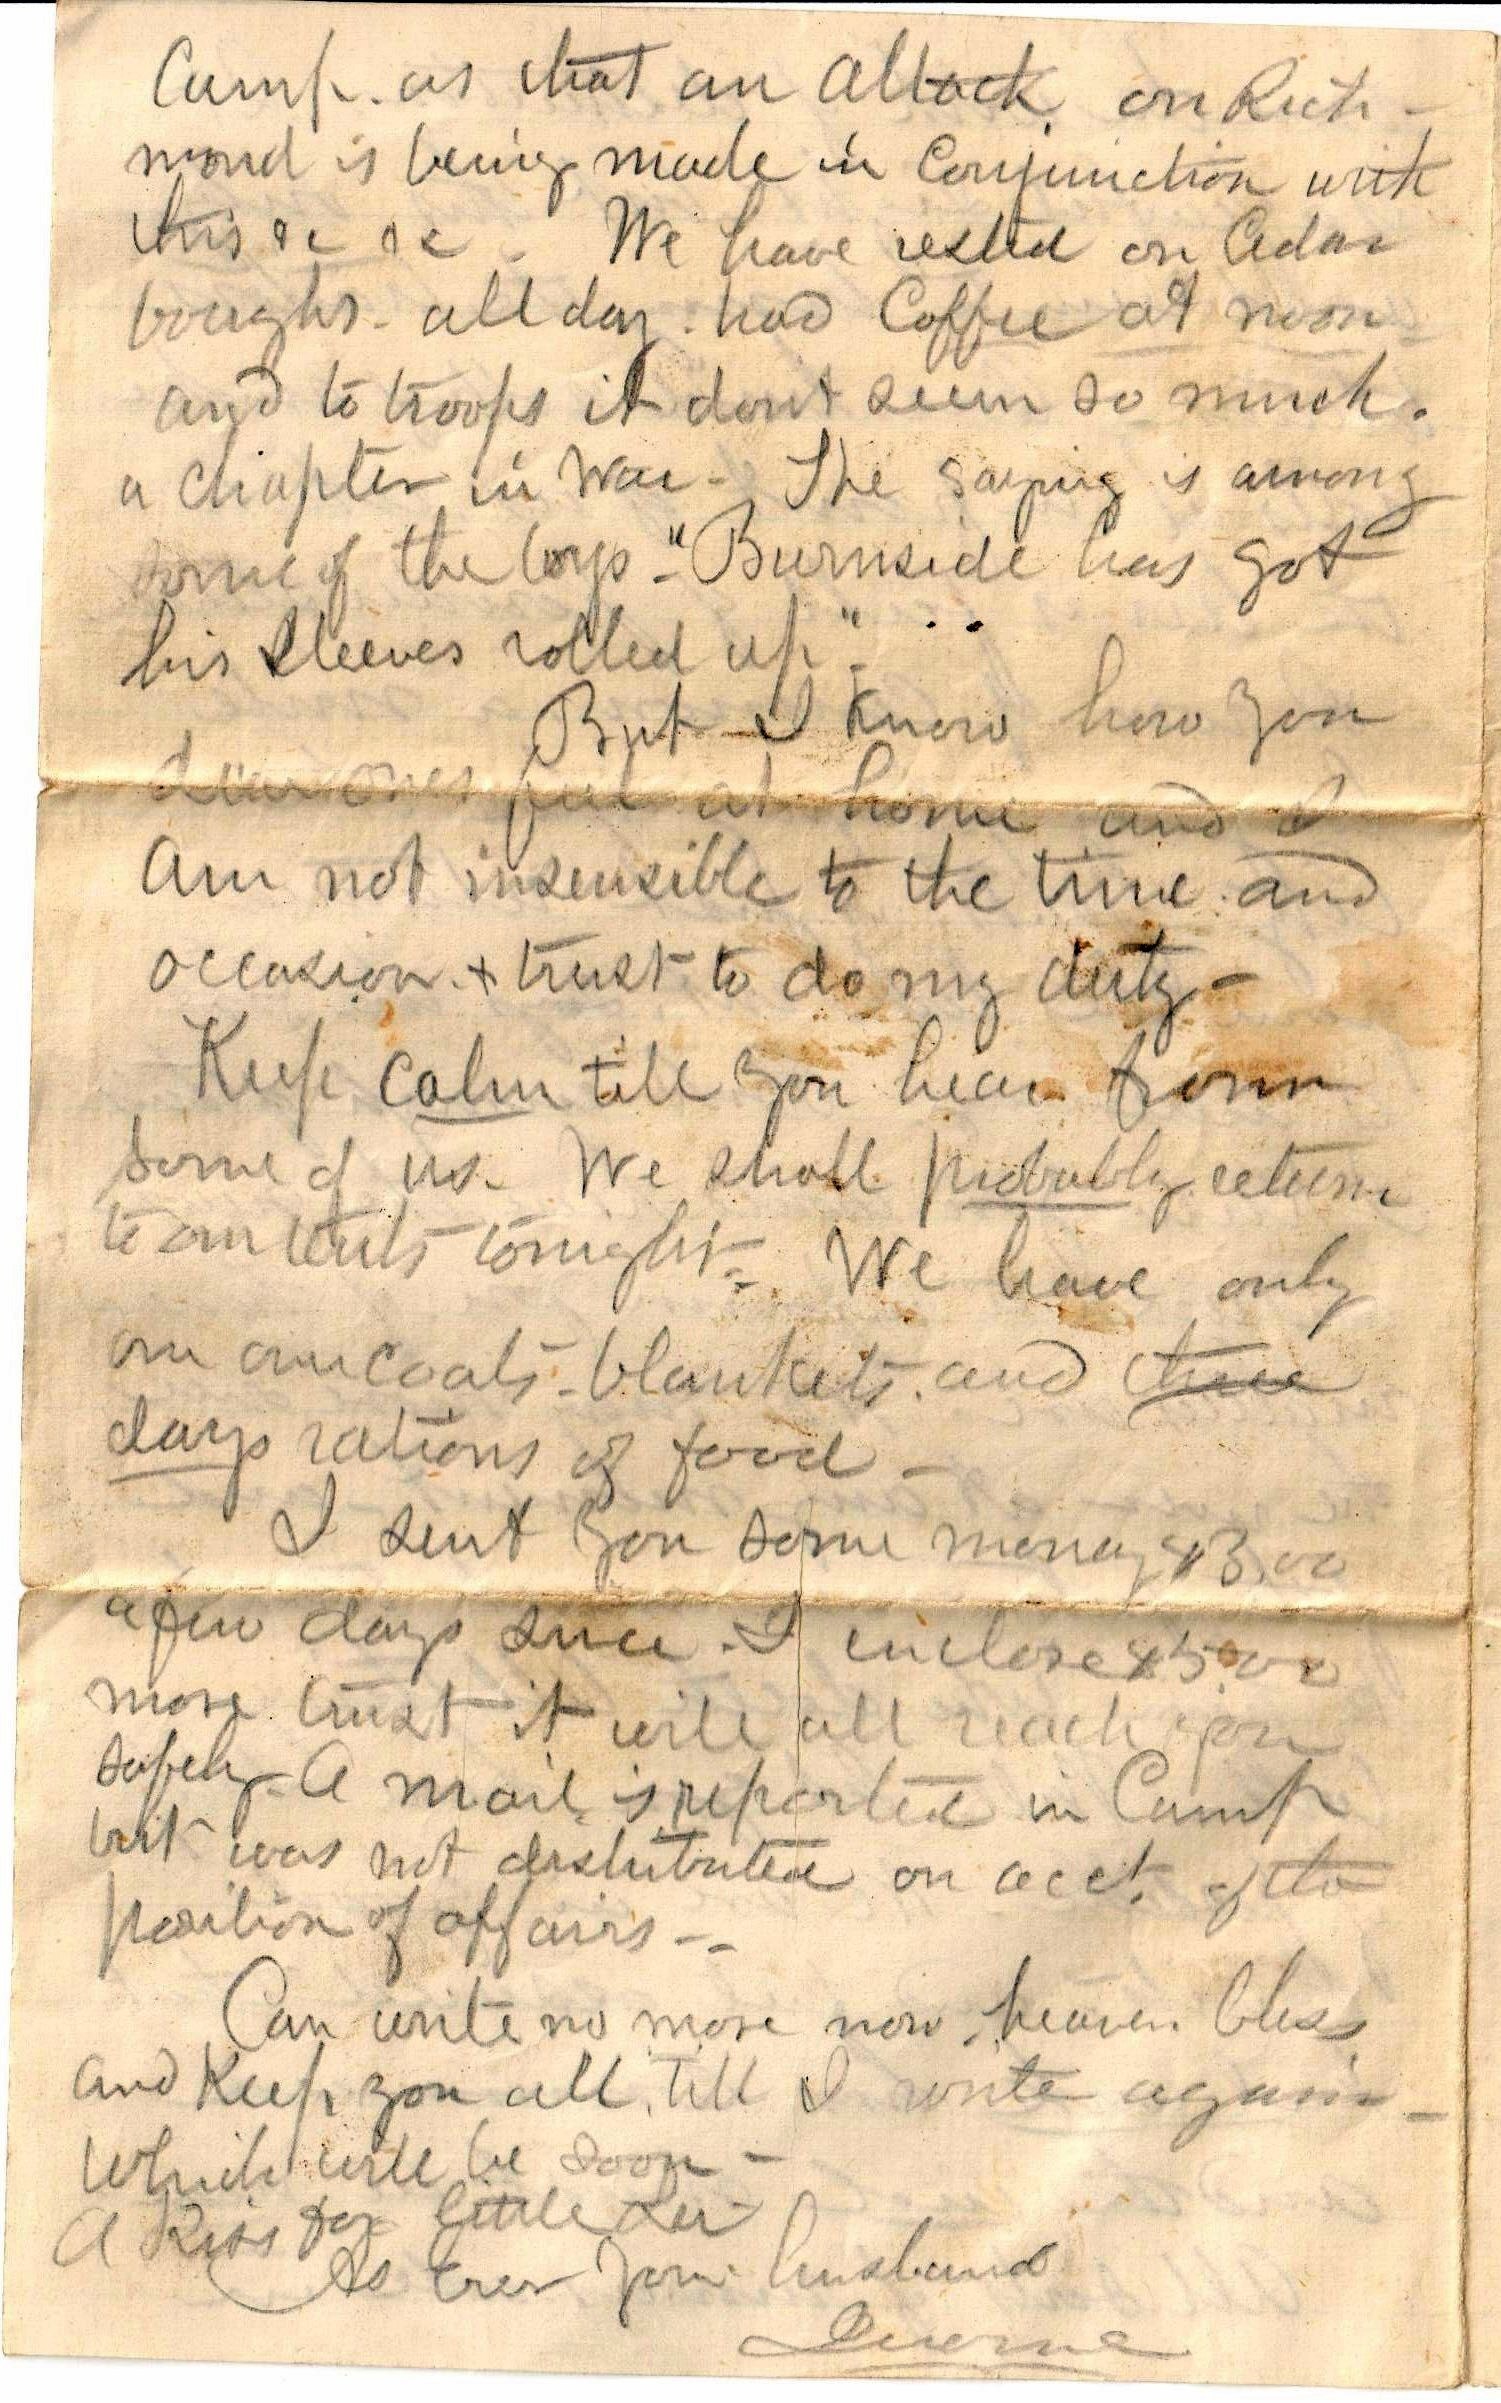 Camp. as that an attack on Rich-
mond is being made in Conjunction with
this &c &c - We have rested on Cedar
boughs - all day. had Coffee at noon
and to troops it dont seem so much.
a chapter in War - The saying is among
some of the boys - "Burnside has got
his sleeves rolled up".
But I know how you
dear ones feel at home and I
am not insensible to the time and
occasion. + trust to do my duty -
Keep calm till you hear from
some of us. We shall probably return
to our tents tonight - We have only
our over coats - blankets. and three
days rations of food -
I sent you some money $3.00
a few days since - I enclose $5.00
more trust it will all reach you
safely - A mail is reported in Camp
but was not distributed on acct. of the
position of affairs --
Can write no more now, heaven bless
and Keep you all, till I write again -
which will be soon -
A Kiss for little
As Ever your husband